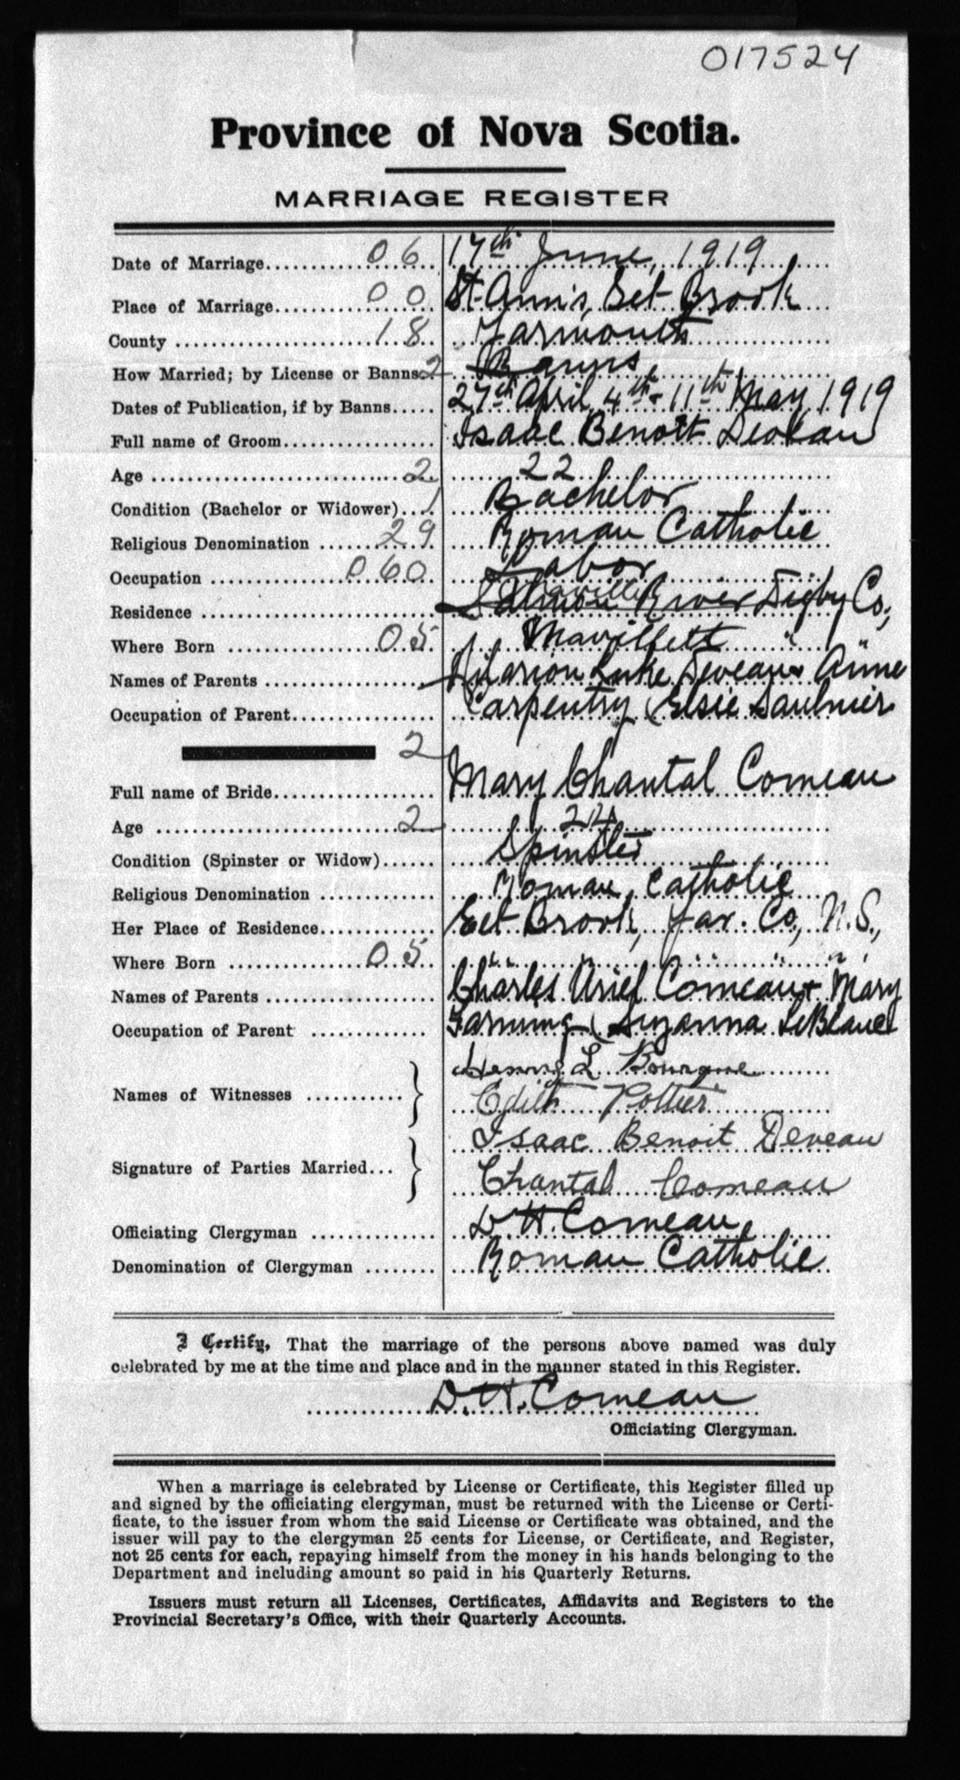 017524
Province of Nova Scotia.
MARRIAGE REGISTER
Date of Marriage 06 17th June, 1919
Place of Marriage 00 St. Ann's, Eel Brook
County 18 Yarmouth
How Married; by License or Banns 2 Banns
Dates of Publication, if by Banns 27th April, 4th & 11th May, 1919
Full name of Groom Isaac Benoit Deveau
Age 2 22
Condition (Bachelor or Widower) 1 Bachelor
Religious Denomination 29 Roman Catholic
Occupation 060 Labor
Mavillette
Residence Salmon River Digby Co,
Where Born 05 Mavillett " "
Names of Parents Hilarion Luke Deveau & Anne
Occupation of Parent Carpentry (Elsie Saulnier
2
Full name of Bride Mary Chantal Comeau
Age 2 24
Condition (Spinster or Widow) Spinster
Religious Denomination Roman Catholic
Her Place of Residence Eel Brook, Yar. Co., N.S.,
Where Born 05 " " " " "
Names of Parents Charles Urief Comeau & Mary
Occupation of Parent Farming (Suzanna LeBlanc
Names of Witnesses } Henry L. Bourque
Edith Pottier
Signature of Parties Married } Isaac Benoit Deveau
Chantal Comeau
Officiating Clergyman D. H. Comeau,
Denomination of Clergyman Roman Catholic
I Certify, That the marriage of the persons above named was duly
celebrated by me at the time and place and in the manner stated in this Register.
D. H. Comeau
Officiating Clergyman.
When a marriage is celebrated by License or Certificate, this Register filled up
and signed by the officiating clergyman, must be returned with the License or Certi-
ficate, to the issuer from whom the said License or Certificate was obtained, and the
issuer will pay to the clergyman 25 cents for License, or Certificate, and Register,
not 25 cents for each, repaying himself from the money in his hands belonging to the
Department and including amount so paid in his Quarterly Returns.
Issuers must return all Licenses, Certificates, Affidavits and Registers to the
Provincial Secretary's Office, with their Quarterly Accounts.